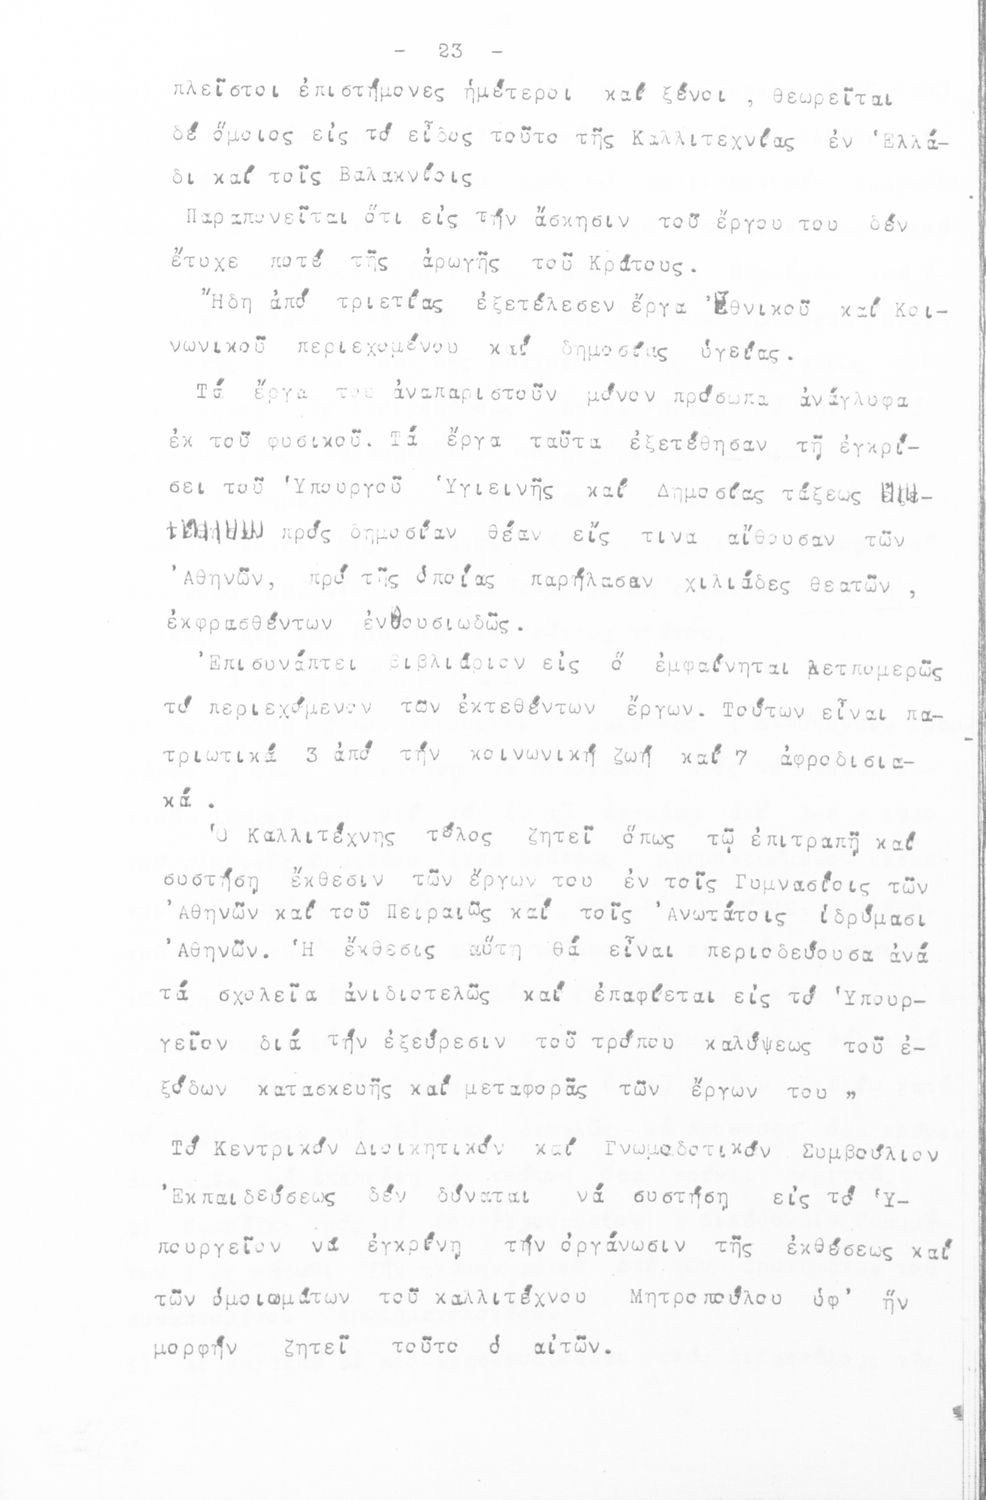 - 23 -
πλεῖστοι ἐπιστήμονες ἡμέτεροι καί ξένοι , θεωρεῖται
δέ ὅμοιος εἰς τό εἶδος τοῦτο τῆς Καλλιτεχνίας ἐν Ἑλλά-
δι καί τοῖς Βαλακνίοις
Παραπονεῖται ὅτι εἰς τήν ἄσκησιν τοῦ ἔργου του δέν
ἔτυχε ποτέ τῆς ἀρωγῆς τοῦ Κράτους.
Ἤδη ἀπό τριετίας ἐξετέλεσεν ἔργα Ἐθνικοῦ καί Κοι-
νωνικοῦ περιεχομένου καί δημοσίας ὑγείας.
Τά ἔργα του ἀναπαριστοῦν μόνον πρόσωπα ἀνάγλυφα
ἐκ τοῦ φυσικοῦ. Τά ἔργα ταῦτα ἐξετέθησαν τῇ ἐγκρί-
σει τοῦ Ὑπουργοῦ Ὑγιεινῆς καί Δημοσίας τάξεως
πρός δημοσίαν θέαν εἴς τινα αἴθουσαν τῶν
Ἀθηνῶν, πρό τῆς ὁποίας παρήλασαν χιλιάδες θεατῶν ,
ἐκφρασθέντων ἐνθουσιωδῶς.
Ἐπισυνάπτει βιβλιάριον εἰς ὅ ἐμφαίνηται λετπομερῶς
τό περιεχόμενον τῶν ἐκτεθέντων ἔργων. Τούτων εἶναι πα-
τριωτικά 3 ἀπό τήν κοινωνική ζωή καί 7 ἀφροδισια-
κά .
Ὁ Καλλιτέχνης τέλος ζητεῖ ὅπως τῷ ἐπιτραπῇ καί
συστήσῃ ἔκθεσιν τῶν ἔργων του ἐν τοῖς Γυμνασίοις τῶν
Ἀθηνῶν καί τοῦ Πειραιῶς καί τοῖς Ἀνωτάτοις ἱδρύμασι
Ἀθηνῶν. Ἡ ἔκθεσις αὕτη θά εἶναι περιοδεύουσα ἀνά
τά σχολεῖα ἀνιδιοτελῶς καί ἐπαφίεται εἰς τό Ὑπουρ-
γεῖον διά τήν ἐξεύρεσιν τοῦ τρόπου καλύψεως τοῦ ἐ-
ξόδων κατασκευῆς καί μεταφορᾶς τῶν ἔργων του "
Τό Κεντρικόν Διοικητικόν καί Γνωμοδοτικόν Συμβούλιον
Ἐκπαιδεύσεως δέν δύναται νά συστήσῃ εἰς τό Ὑ-
πουργεῖον νά ἐγκρίνῃ τήν ὀργάνωσιν τῆς ἐκθέσεως καί
τῶν ὁμοιωμάτων τοῦ καλλιτέχνου Μητροπούλου ὑφ' ἥν
μορφήν ζητεῖ τοῦτο ὁ αἰτῶν.